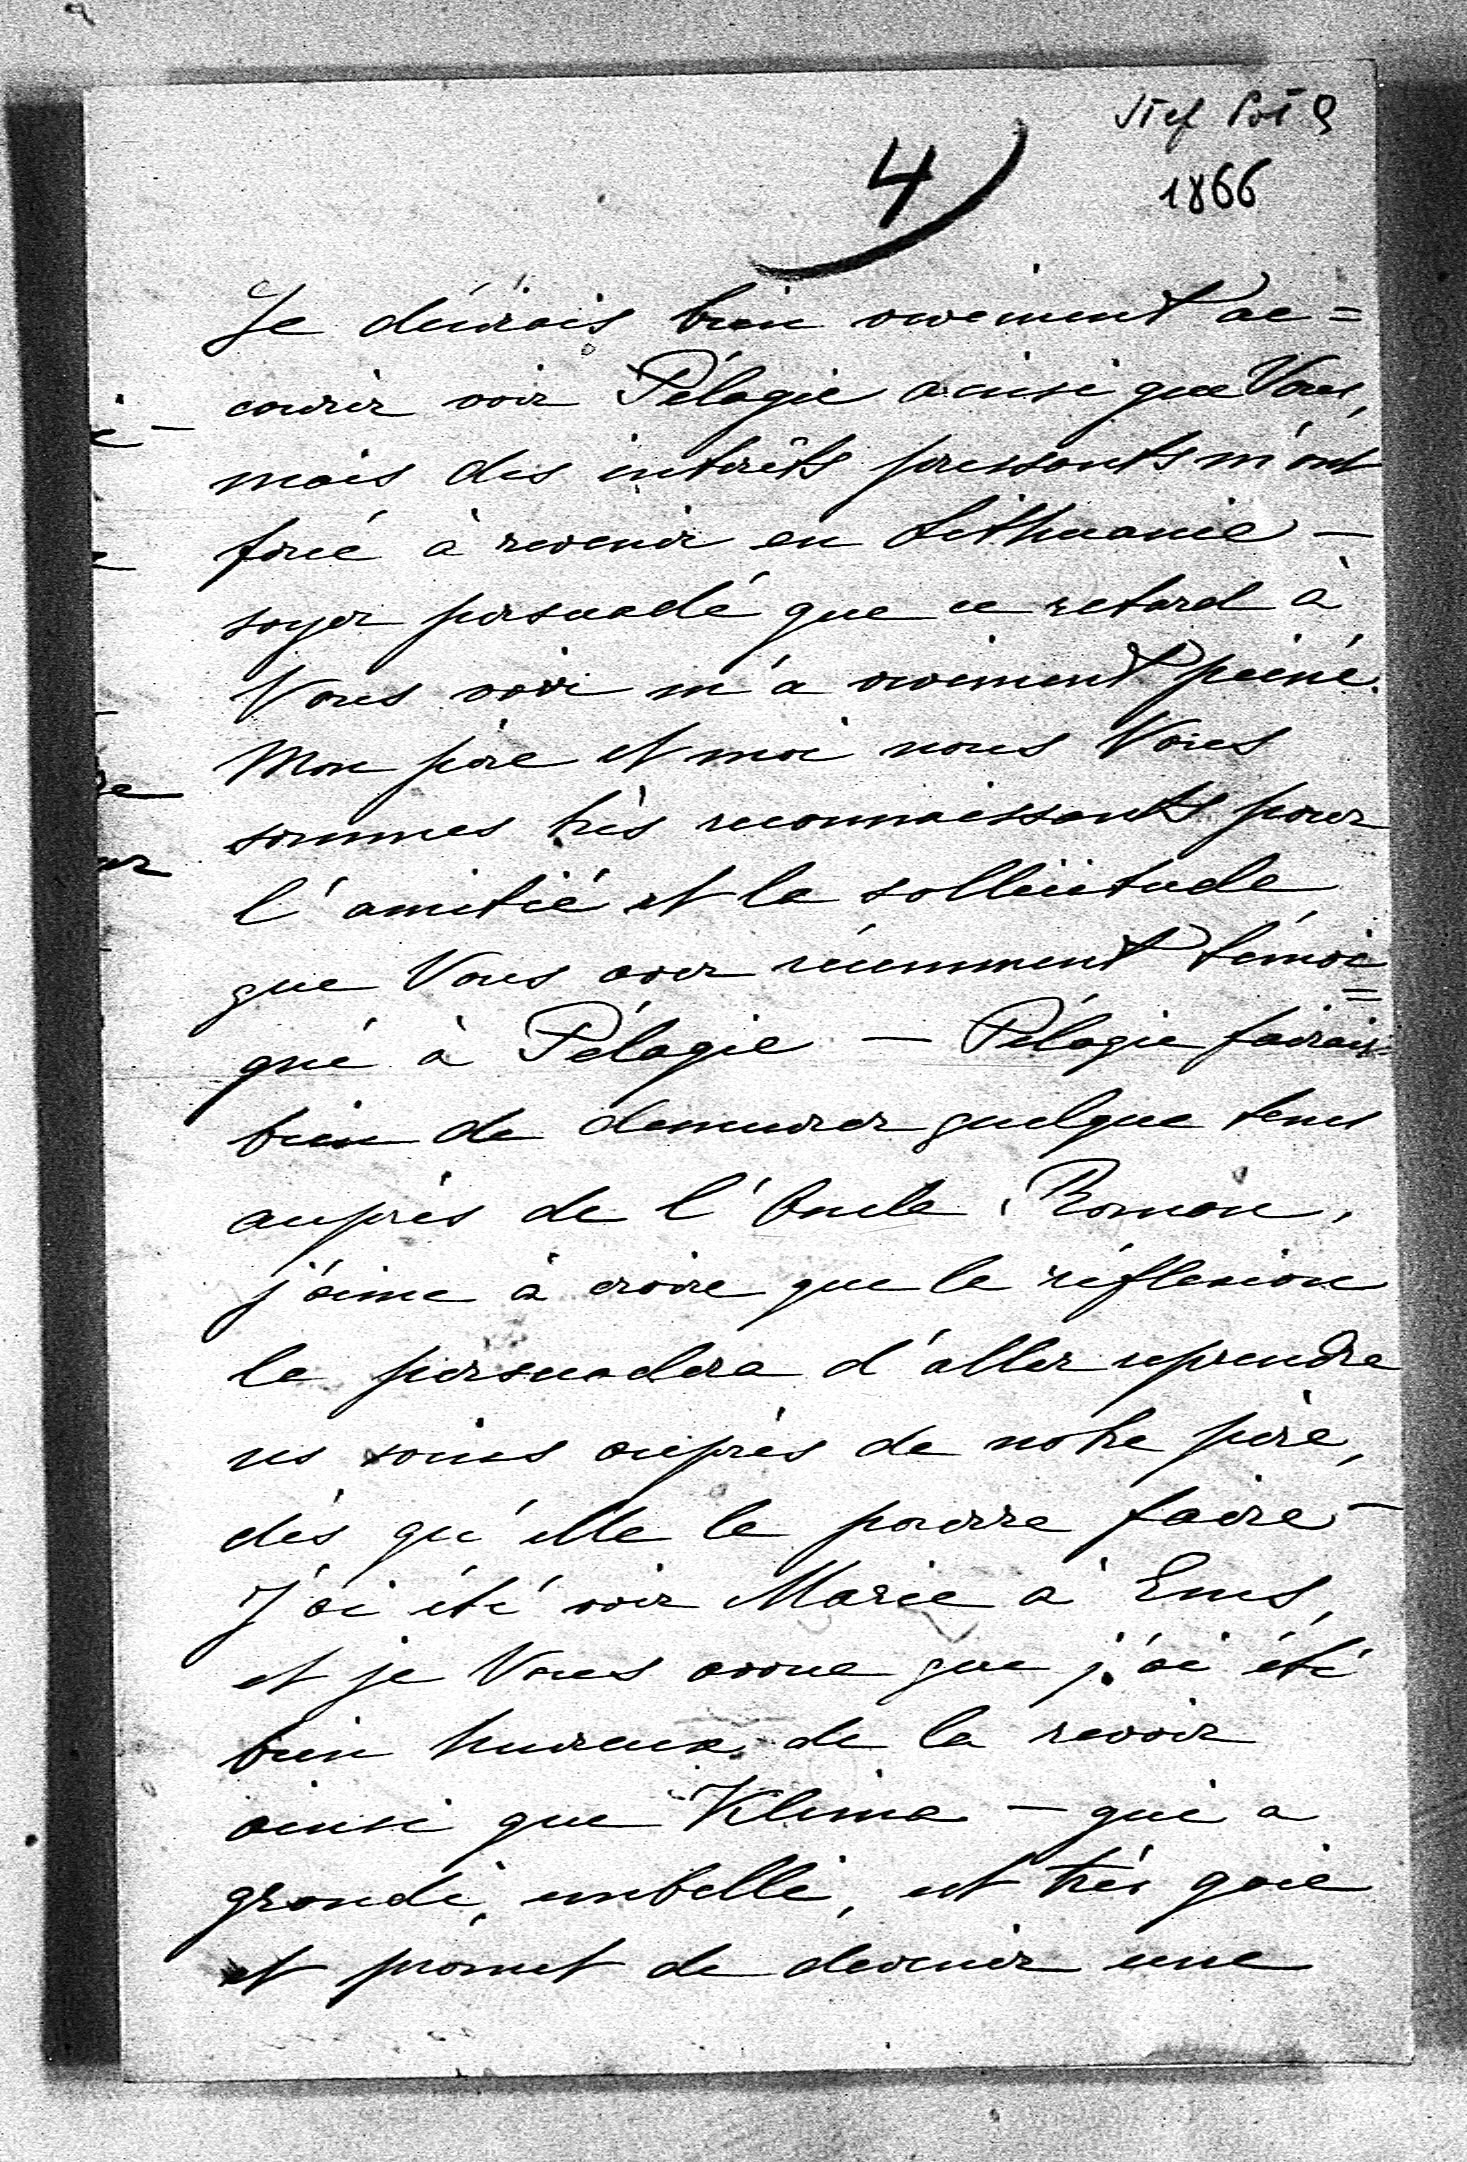 1866
4
Je désirais bien vivement ac=
courir voir Pélagie ainsi que Vous,
mais des intérêts pressants m'ont
forcé à revenir en Lithuanie —
soyez persuadé que ce retard à
Vous voir m'a vivement peiné.
Mon père et moi nous Vous
sommes très reconnaissants pour
l'amitié et la sollicitude
que Vous avez récemment témoi=
gné à Pélagie — Pélagie fairait
bien de demeurer quelque tems
auprès de l'Oncle Roman,
j'aime à croire que la réflexion
la persuadera d'aller reprendre
ses soins auprès de notre père,
dès qu'elle le pourra faire —
J'ai été voir Marie à Ems,
et je Vous avoue que j'ai été
bien heureux de la revoir
ainsi que Klima — qui a
grandi, embelli, est très gaie
et promet de devenir une